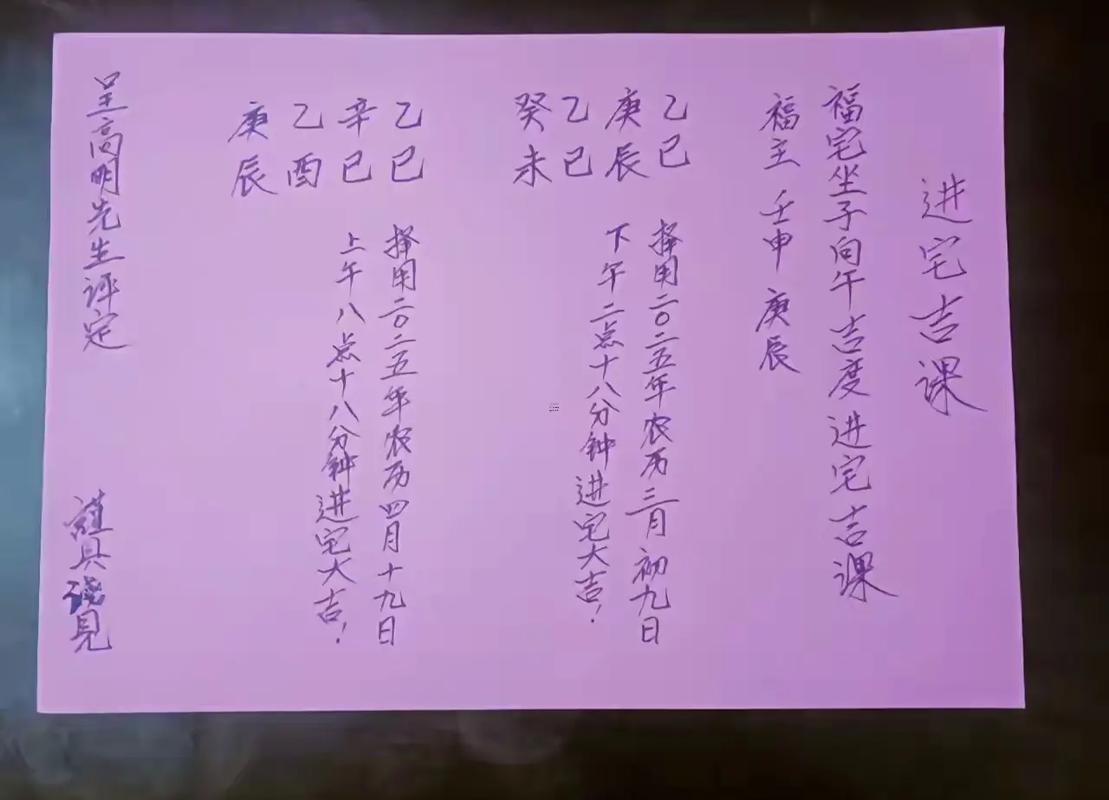 进宅吉课
福宅坐子向午吉度进宅吉课
福主 壬申 庚辰
乙巳
庚辰
乙巳
癸未
择用二〇二五年农历三月初九日
下午二点十八分钟进宅大吉！
乙巳
辛巳
乙酉
庚辰
择用二〇二五年农历四月十九日
上午八点十八分钟进宅大吉！
呈高明先生评定
謹具浅見